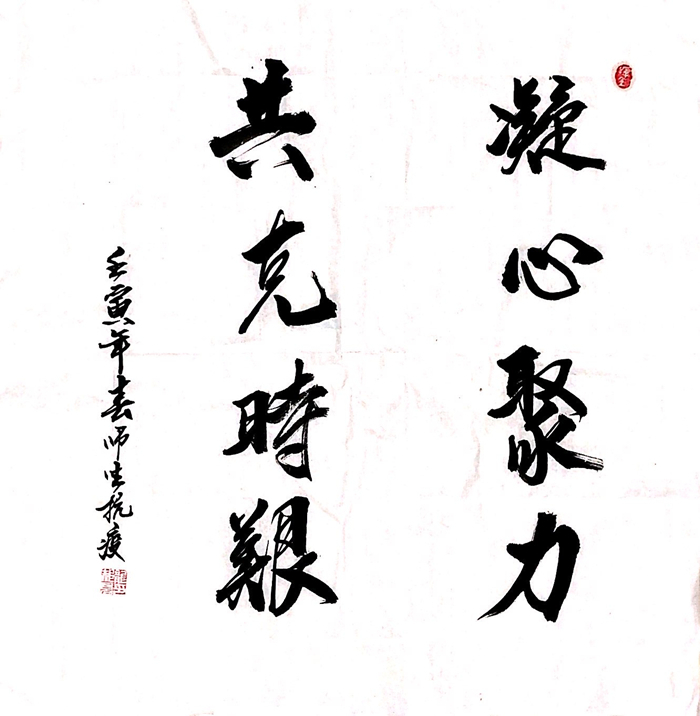 凝心聚力
共克時艱
壬寅年春师生抗疫